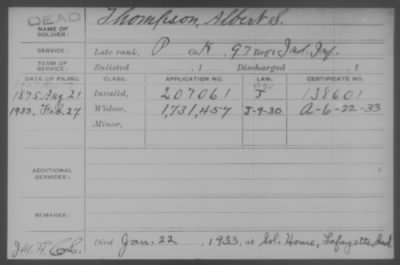 DEAD
NAME OF SOLDIER: Thompson, Albert S.
SERVICE: Late rank, P Co. K, 97 Reg't Ind. Inf.
TERM OF SERVICE: Enlisted , 1 Discharged , 1
DATE OF FILING. CLASS. APPLICATION NO. LAW. CERTIFICATE NO.
1875, Aug 21 Invalid, 207061 J 138601
1933, Feb. 27 Widow, 1,731,457 J-9-30 A-6-22-33
Minor,
ADDITIONAL SERVICES:
REMARKS:
Died Jan. 22, 1933, at Sol. Home, Lafayette, Ind